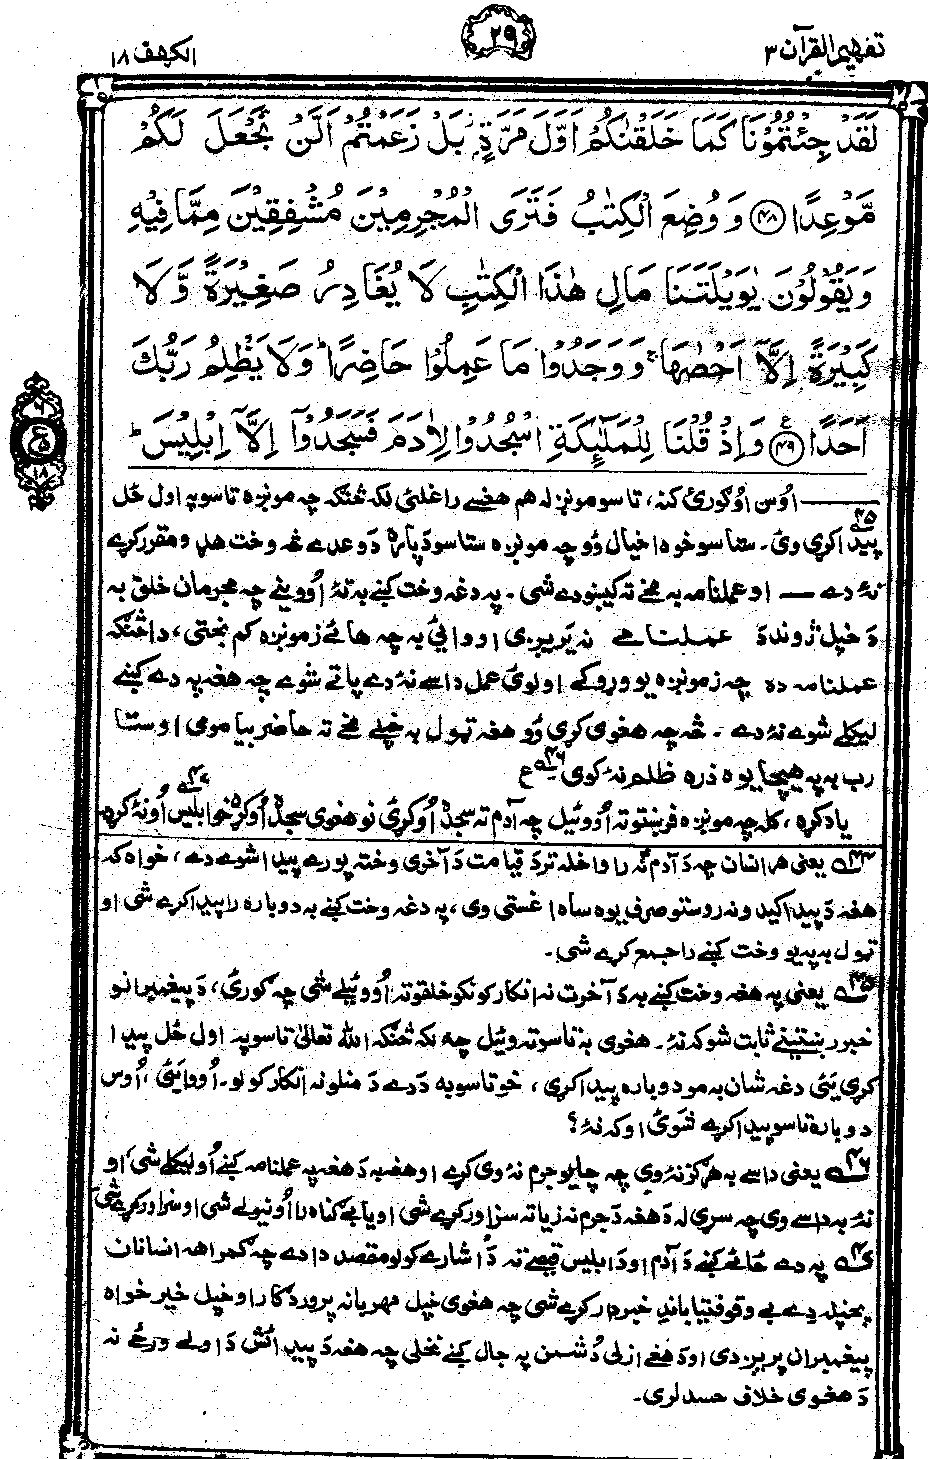 تفهیم القرآن ۳
۲۹
الکهف ۱۸
لَقَدْ جِئْتُمُوْنَا كَمَا خَلَقْنٰكُمْ اَوَّلَ مَرَّةٍۭ ۫ بَلْ زَعَمْتُمْ اَلَّنْ نَّجْعَلَ لَكُمْ
مَّوْعِدًا ﴿۴۸﴾ وَ وُضِعَ الْكِتٰبُ فَتَرَى الْمُجْرِمِيْنَ مُشْفِقِيْنَ مِمَّا فِيْهِ
وَ يَقُوْلُوْنَ يٰوَيْلَتَنَا مَالِ هٰذَا الْكِتٰبِ لَا يُغَادِرُ صَغِيْرَةً وَّ لَا
كَبِيْرَةً اِلَّاۤ اَحْصٰىهَا ۚ وَ وَجَدُوْا مَا عَمِلُوْا حَاضِرًا ؕ وَ لَا يَظْلِمُ رَبُّكَ
اَحَدًا ﴿۴۹﴾ وَ اِذْ قُلْنَا لِلْمَلٰٓئِكَةِ اسْجُدُوْا لِاٰدَمَ فَسَجَدُوْۤا اِلَّاۤ اِبْلِيْسَ ؕ
۶
ع ۵
۱۸
—— اوُس اوُګورئ کنه، تاسو مونږ له هم هغسے راغلئ لکه څنګه چه مونږه تاسو په اول ځل
پیدا کړی وئ۔ ستاسو خو دا خیال وو چه مونږه ستاسو دپاره د وعدے څه وخت هډو مقرر کړے
نۀ دے —— او عملنامه به مخے ته کیښودے شی۔ په دغه وخت کښے به تۀ اووینے چه مجرمان خلق به
د خپل ژوند د عملنامے نه یریږی او وائی به چه هائے زمونږه کم بختی، دا څنګه
عملنامه ده چه زمونږه یو وړوکے او لوئ عمل داسے نۀ دے پاتے شوے چه هغه په دے کښے
لیکلے شوے نۀ دے۔ څه چه هغوی کړی وو هغه ټول به خپلے مخے ته حاضر بیا مومی او ستا
رب به په هیچا یوه ذره ظلم نۀ کوی۔ ۴۶ ع
یاد کړه، کله چه مونږه فرښتو ته اووئیل چه آدم ته سجده اوکړئ نو هغوی سجده اوکړه خو ابلیس اونۀ کړه ۴۷
۴۴ یعنی هر انسان چه د آدمؑ نه را واخله تر د قیامت د آخری وخته پورے پیدا شوے دے، خواه که
هغه د پیدا کیدو نه روستو صرف یوه ساه اغستی وی، په دغه وخت کښے به دوباره را پیدا کړے شی او
ټول به په یو وخت کښے را جمع کړے شی۔
۴۵ یعنی په هغه وخت کښے به د آخرت نه انکار کونکو خلقو ته اووئیلے شی چه ګورئ، د پیغمبرانو
خبر رښتینے ثابت شو که نۀ۔ هغوی به تاسو ته وئیل چه لکه څنګه الله تعالیٰ تاسو په اول ځل پیدا
کړی یئ دغه شان به مو دوباره پیدا کړی، خو تاسو به د دے د منلو نه انکار کولو۔ اووایئ، اوس
دوباره تاسو پیدا کړے شوئ او که نۀ؟
۴۶ یعنی داسے به هرګز نۀ وی چه چا یو جرم نۀ وی کړے او هغه به د هغه په عملنامه کښے اولیکلے شی، او
نۀ به داسے وی چه سړی له د هغه د جرم نه زیاته سزا ورکړے شی او یا بے ګناه را اونیولے شی او سزا ورکړے شی
۴۷ په دے ځائے کښے د آدم او د ابلیس قیصے ته د اشارے کولو مقصد دا دے چه ګمراهه انسانان
په خپله دے بے وقوفتیا باندے خبردار کړے شی چه هغوی خپل مهربانه پروردګار او خپل خیر خواه
پیغمبران پریږدی او د هغے ازلی دُشمن په جال کښے نخلی چه هغه د پیدائش د اولے ورځے نه
د هغوی خلاف حسد لری۔